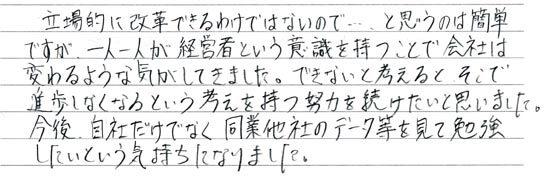 立場的に改革できるわけではないので…、と思うのは簡単
ですが、一人一人が経営者という意識を持つことで会社は
変わるような気がしてきました。できないと考えると そこで
進歩しなくなるという考えを持つ努力を続けたいと思いました。
今後、自社だけでなく 同業他社のデータ等を見て勉強
したいという気持ちになりました。